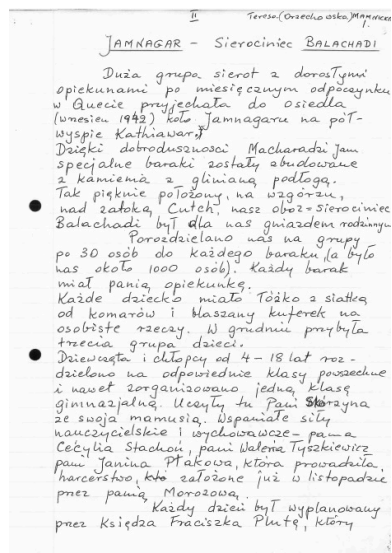 II
Teresa (Orzechowska) MAMNICKA
JAMNAGAR – Sierociniec BALACHADI
Duża grupa sierot z dorosłymi
opiekunami po miesięcznym odpoczynku
w Quecie przyjechała do osiedla
(wrzesień 1942) koło Jamnagaru na pół-
wyspie Kathiawar.
Dzięki dobroduszności Macharadży Jam
specjalne baraki zostały zbudowane
z kamienia z glinianą podłogą.
Tak pięknie położony, na wzgórzu,
nad zatoką, Cutch, nasz obóz-sierociniec
Balachadi był dla nas gniazdem rodzinnym
Porozdzielano nas na grupy
po 30 osób do każdego baraku, (a było
nas około 1000 osób). Każdy barak
miał panią opiekunkę.
Każde dziecko miało łóżko z siatką
od komarów i blaszany kuferek na
osobiste rzeczy. W grudniu przybyła
trzecia grupa dzieci.
Dziewczęta i chłopcy od 4–18 lat roz-
dzielono na odpowiednie klasy powszechne
i nawet zorganizowano jedną klasę
gimnazjalną. Uczyły tu Pani Skórzyna
ze swoja mamusią. Wspaniałe siły
nauczycielskie i wychowawcze – panna
Cecylia Stachoń, pani Waleria Tyszkiewicz
pani Janina Ptakowa, która prowadziła
harcerstwo, założone już w listopadzie
przez panią Morozową.
Każdy dzień był wyplanowany
przez Księdza Fraciszka Plutę, który